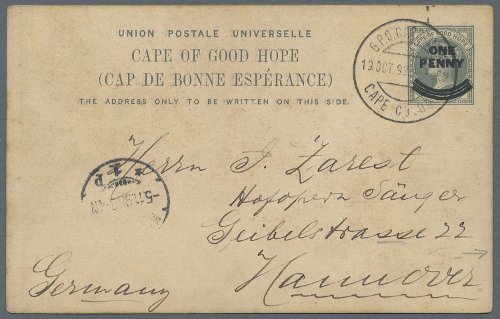 UNION POSTALE UNIVERSELLE
CAPE OF GOOD HOPE
(CAP DE BONNE ESPÉRANCE)
THE ADDRESS ONLY TO BE WRITTEN ON THIS SIDE.
G.P.O.
OCT.
CAPE
CAPE OF GOOD HOPE
ONE
PENNY
Herrn J. Zarest
Hofopern Sänger
Geibelstrasse 22
Hannover
Germany
* 1 P